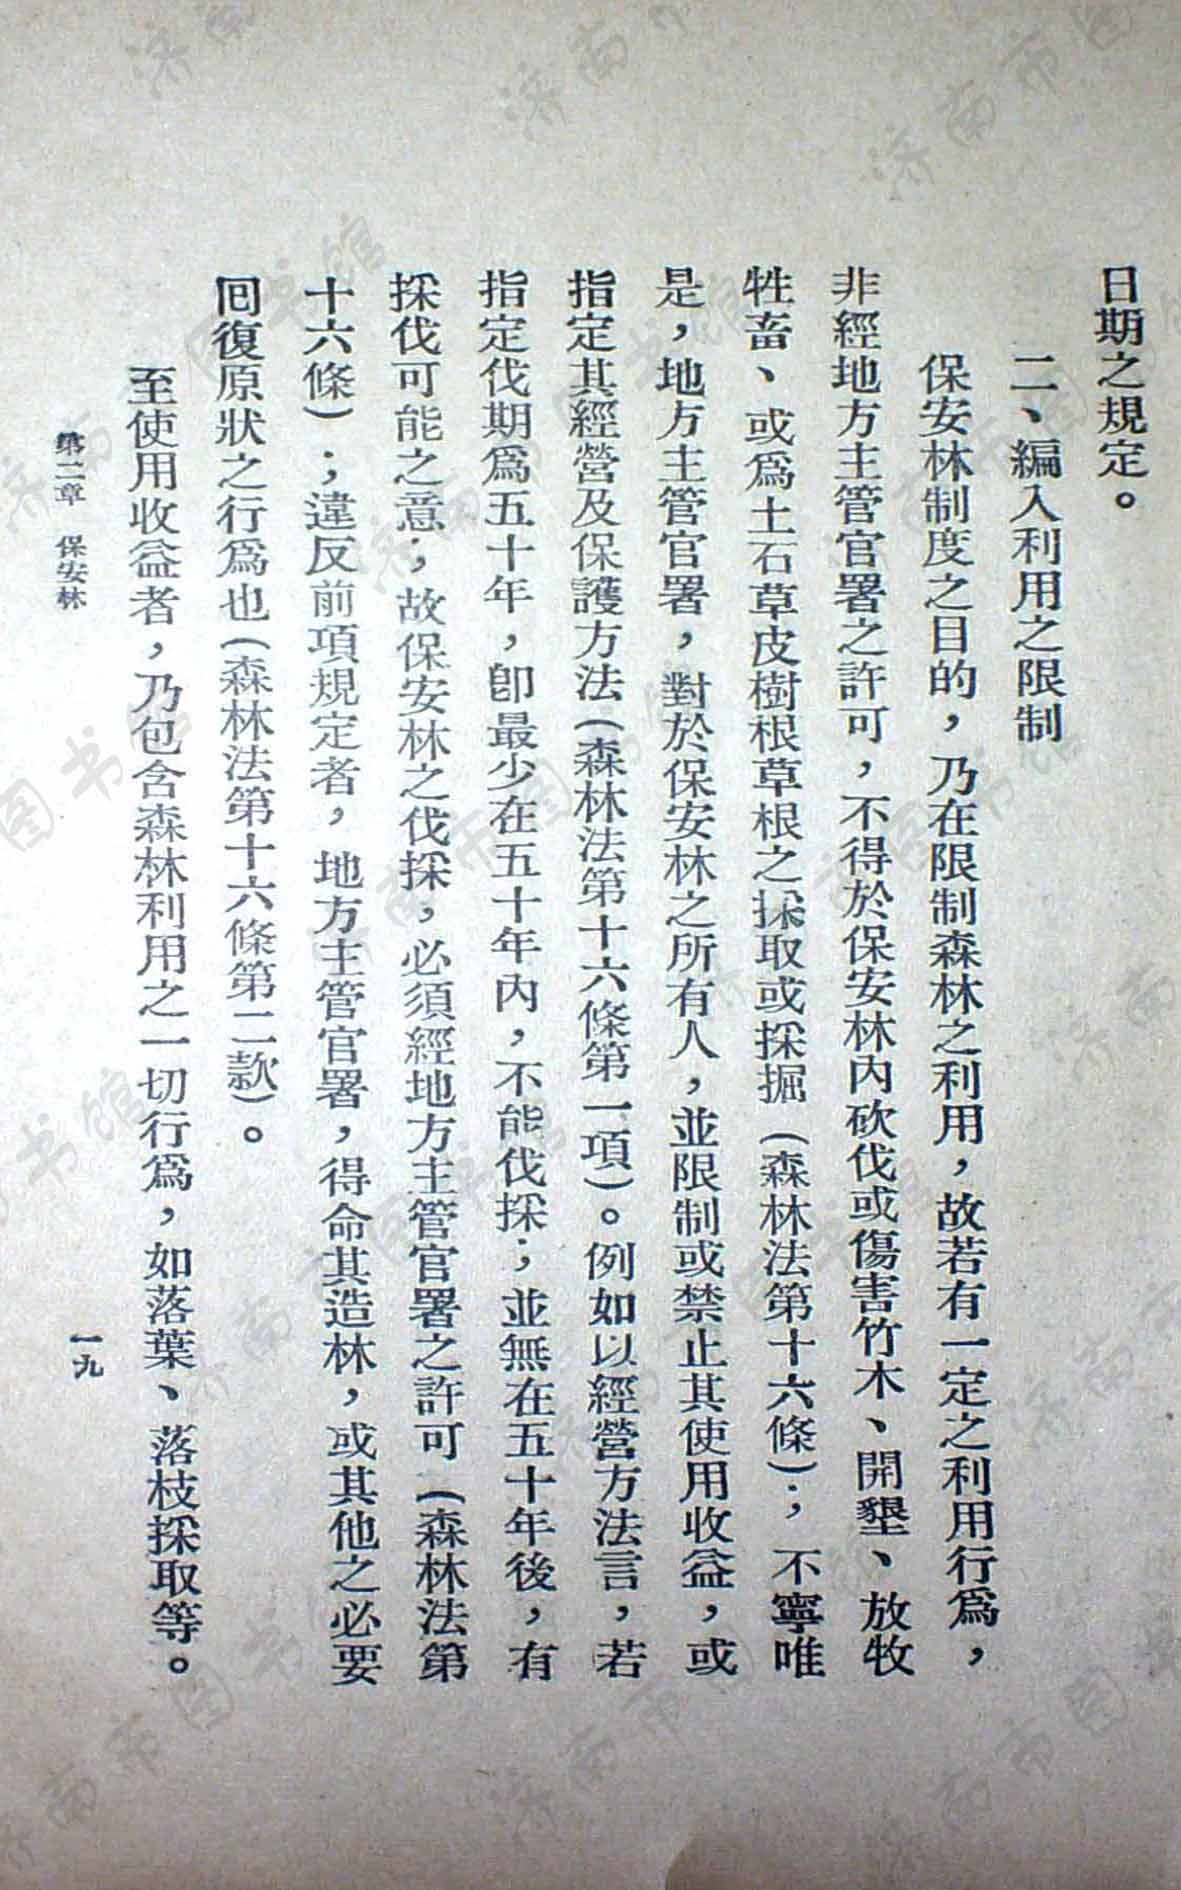 日期之規定。
二、編入利用之限制
保安林制度之目的，乃在限制森林之利用，故若有一定之利用行爲，
非經地方主管官署之許可，不得於保安林內砍伐或傷害竹木、開墾、放牧
牲畜、或爲土石草皮樹根草根之採取或採掘（森林法第十六條）；不寧唯
是，地方主管官署，對於保安林之所有人，並限制或禁止其使用收益，或
指定其經營及保護方法（森林法第十六條第一項）。例如以經營方法言，若
指定伐期爲五十年，卽最少在五十年內，不能伐採；並無在五十年後，有
採伐可能之意；故保安林之伐採，必須經地方主管官署之許可（森林法第
十六條）；違反前項規定者，地方主管官署，得命其造林，或其他之必要
囘復原狀之行爲也（森林法第十六條第二款）。
至使用收益者，乃包含森林利用之一切行爲，如落葉、落枝採取等。
第二章　保安林
一九
济南市图书馆